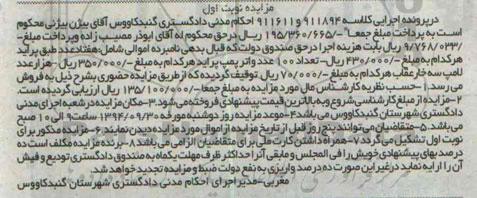 مزایده نوبت اول
در پرونده اجرایی کلاسه ۹۱۱۸۹۴ و ۹۱۱۶۱۱ احکام مدنی دادگستری گنبدکاووس آقای بیژن بیژنی محکوم
است به پرداخت مبلغ جمعا"-/۱۹۵/۳۶۰/۶۶۵ ریال در حق محکوم له آقای ابوذر معصب زاده و پرداخت مبلغ-
/۹/۷۶۸/۰۳۳ ریال بابت هزینه اجرا در حق صندوق دولت که قبال بدهی نامبرده اموالی شامل: هفتاد عدد طبق پراید
هر کدام به مبلغ -/۴۳۰/۰۰۰ ریال- تعداد ۱۰۰ عدد واتر پمپ پراید هر کدام به مبلغ -/۳۵۰/۰۰۰ ریال- هزار عدد
لامپ سه خار عقاب هر کدام به مبلغ -/۷۰/۰۰۰ ریال توقیف گردیده که از طریق مزایده حضوری بشرح ذیل به فروش
می رسد.۱-حسب نظریه کارشناس مال مورد مزایده به مبلغ جمعا-/۱۳۵/۱۰۰/۰۰۰ ریال ارزیابی گردیده است.
۲-مزایده از مبلغ کارشناسی شروع و به بالاترین قیمت پیشنهادی فروخته می شود.۳-مکان مزایده در شعبه اجرای مدنی
دادگستری شهرستان گنبدکاووس می باشد.۴-موعد مزایده روز دوشنبه مورخه ۱۳۹۴/۰۹/۳۰ ساعت ۹ الی ۱۰ صبح
می باشد.۵-متقاضیان می توانند پنج روز قبل از تاریخ مزایده از اموال مورد مزایده دیدن نمایند.۶-مزایده مذکور برای
نوبت اول تشکیل می گردد.۷-همراه داشتن کارت ملی برای متقاضیان الزامی می باشد.۸-برنده مزایده مکلف است ده
درصد بهای پیشنهادی خویش را فی المجلس و مابقی آنرا حداکثر ظرف مهلت یکماه به صندوق دادگستری تودیع و فیش
آن را ارایه نماید در غیر این صورت ده درصد واریزی به نفع دولت ضبط و مزایده تجدید خواهد شد.
مغربی-مدیر اجرای احکام مدنی دادگستری شهرستان گنبدکاووس